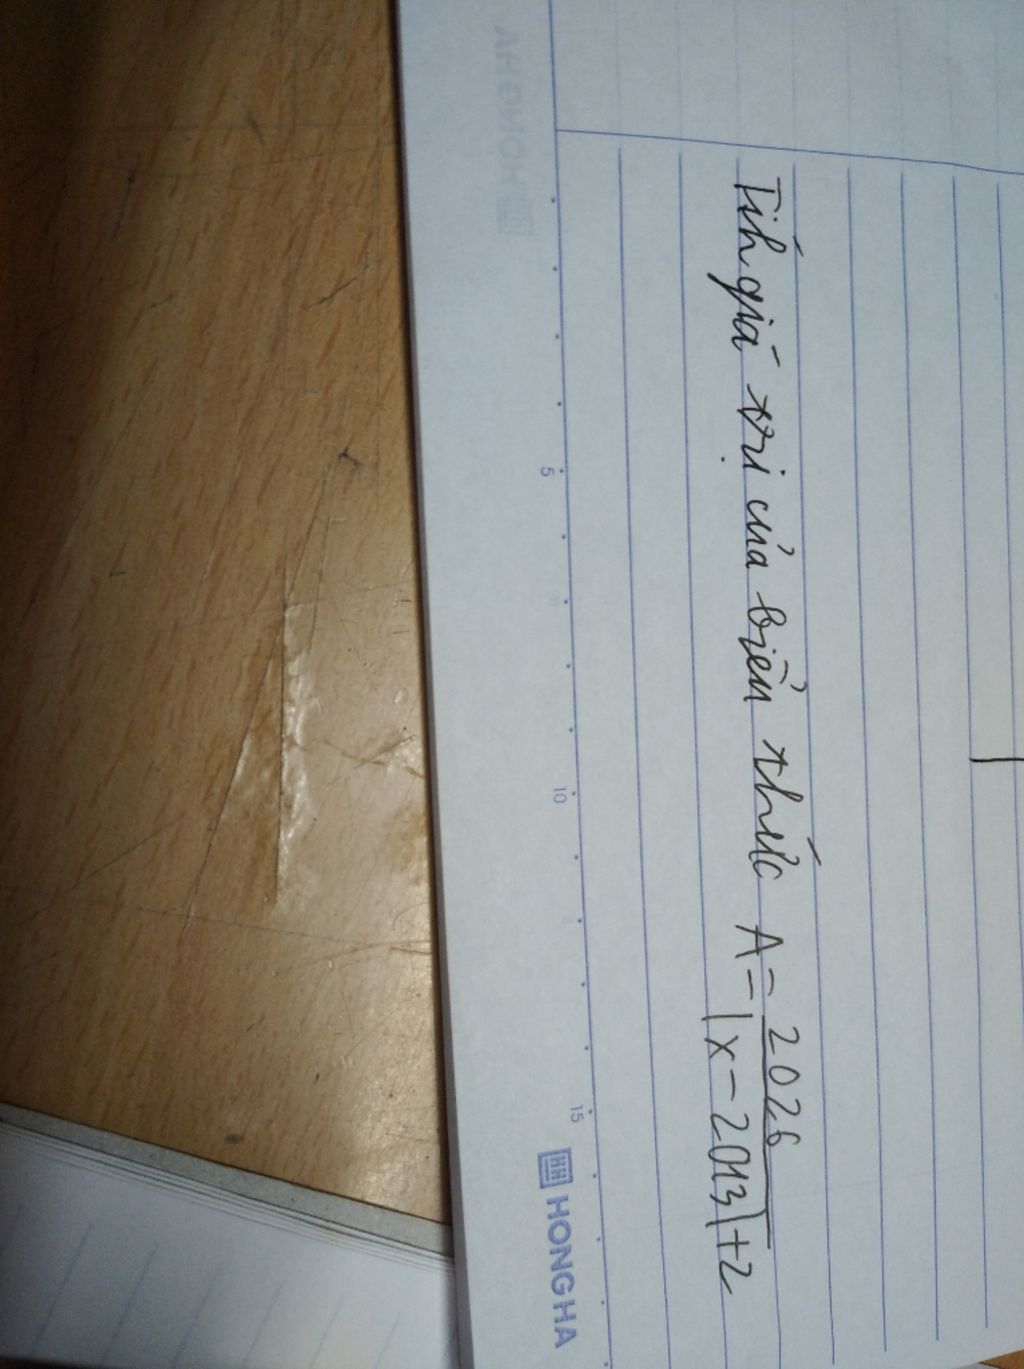 Tíh giá trị của biển thức A = \frac{2026}{|x-2013|+2}
5
10
15
HONG HA
HONG HA